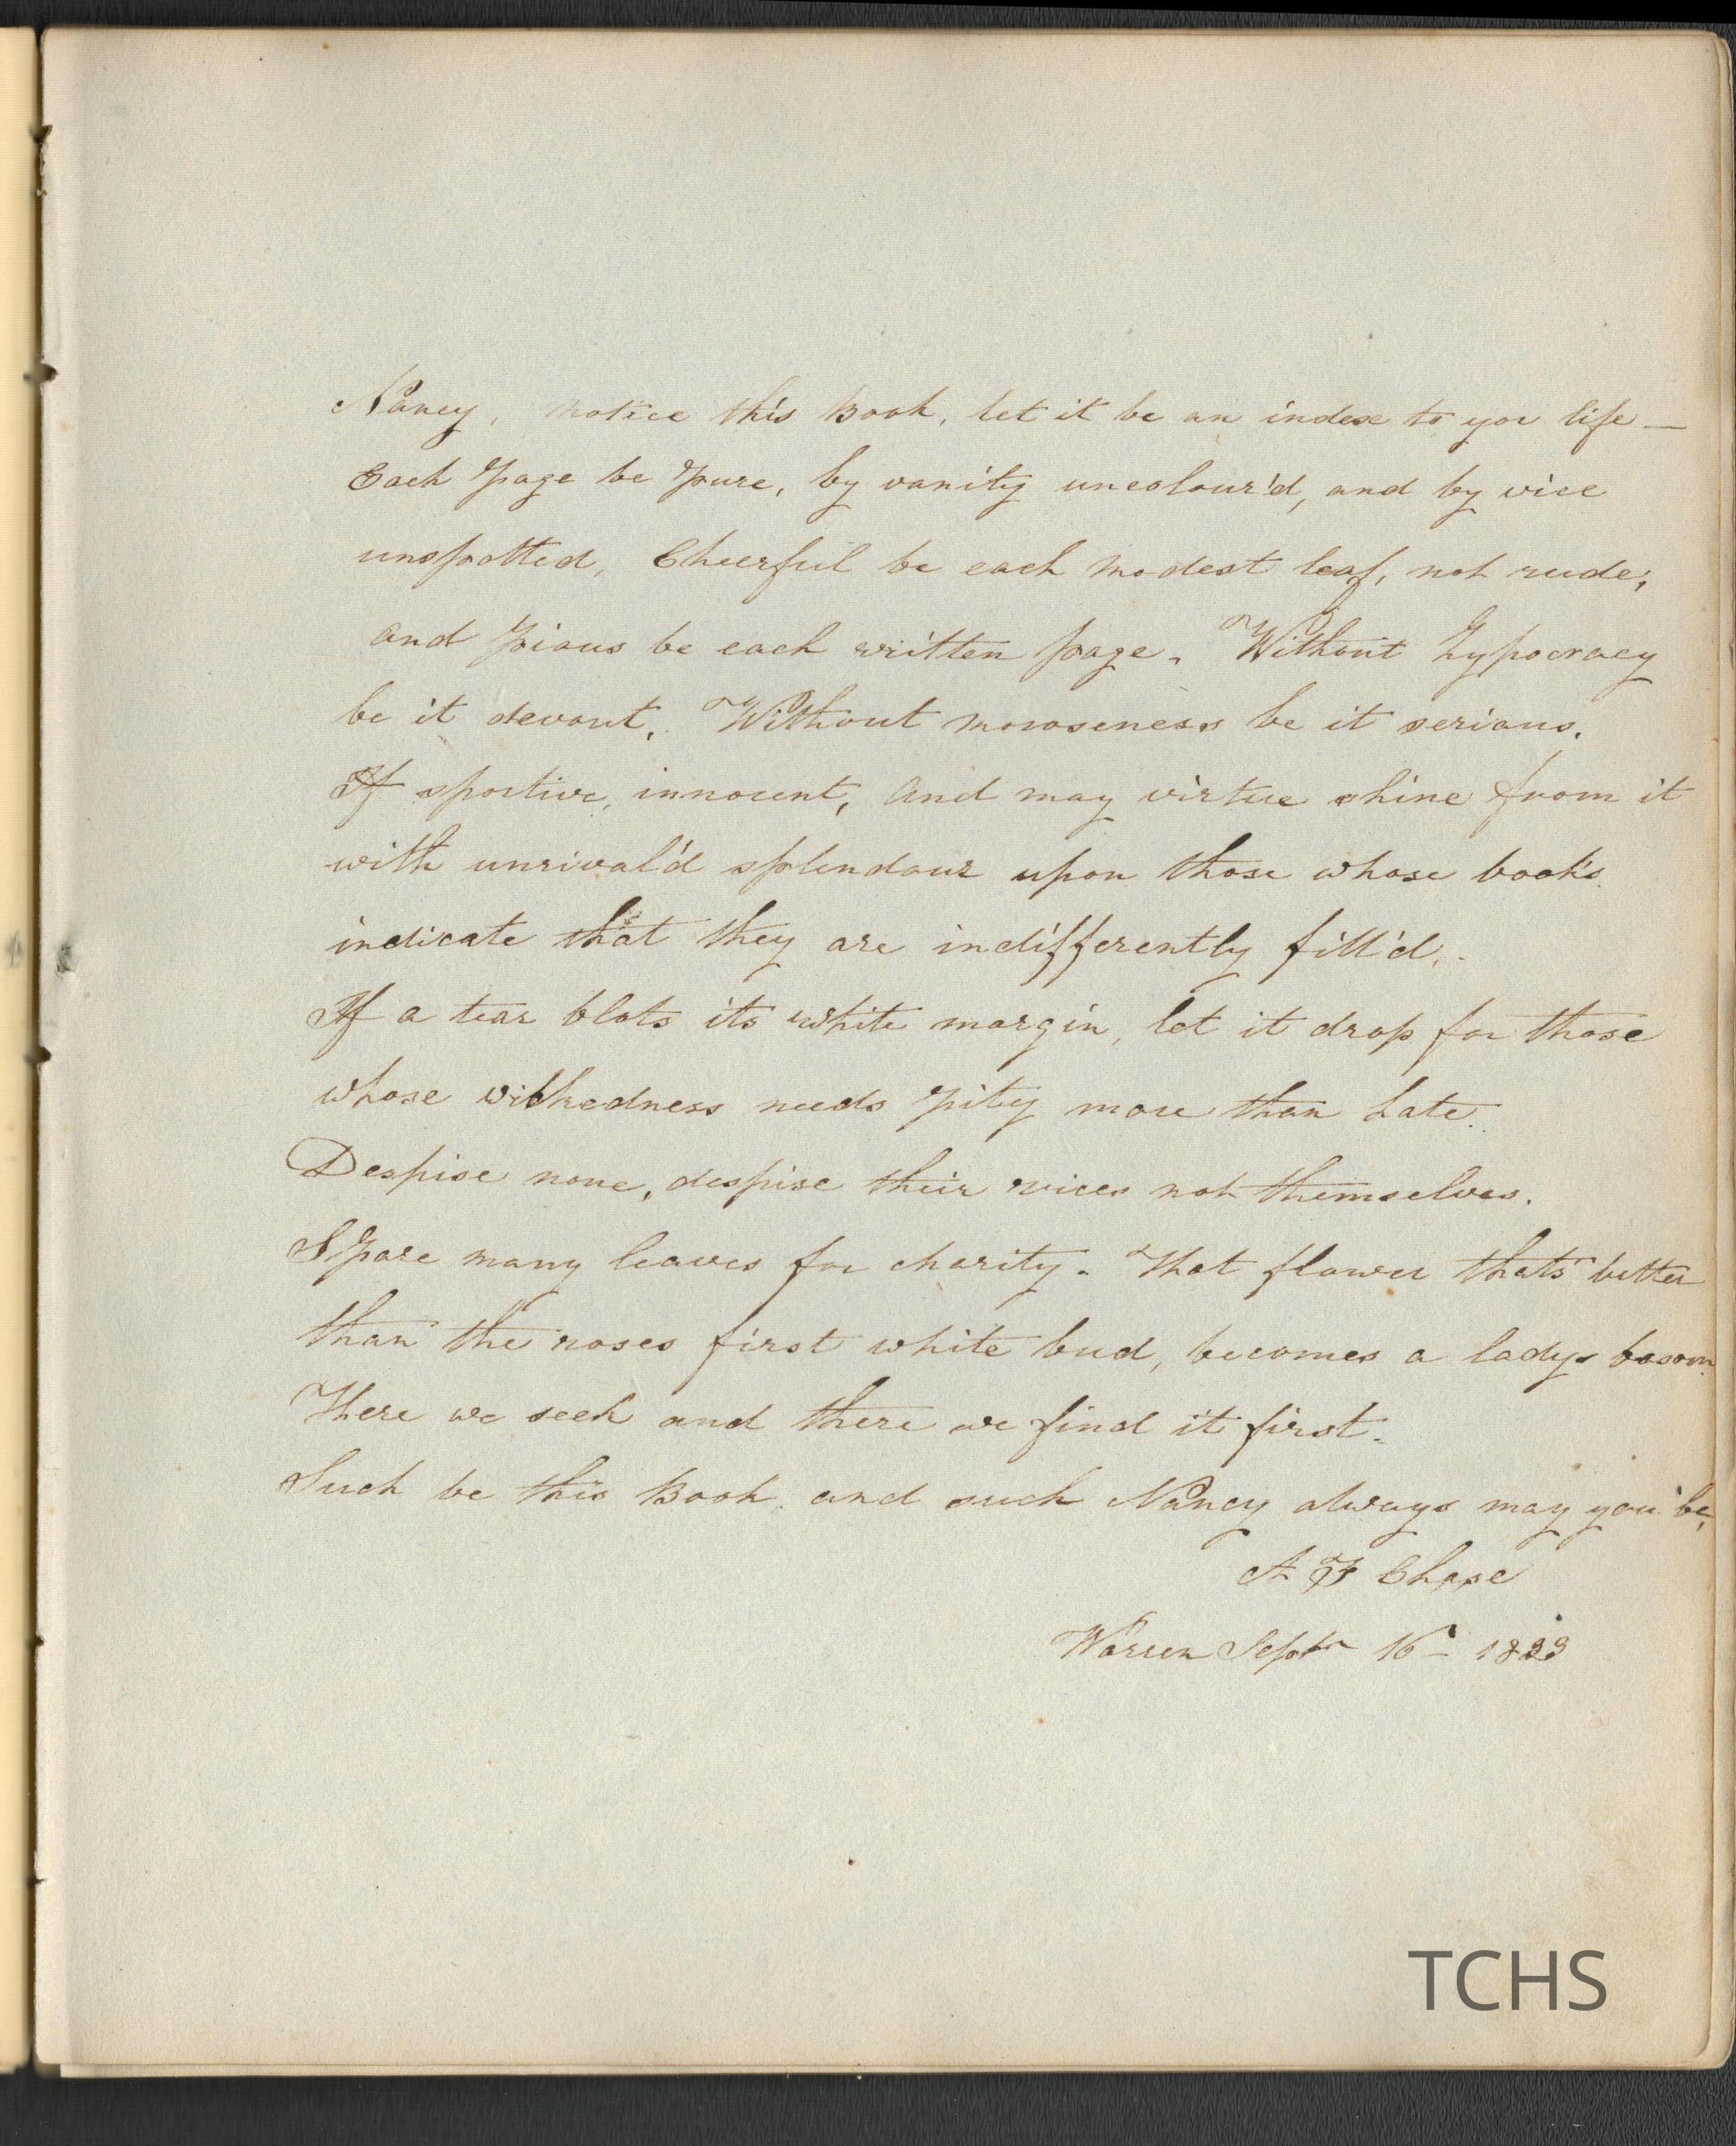 Nancy, notice this Book, let it be an index to your life —
Each page be pure, by vanity uncolour'd, and by vice
unspotted, Cheerful be each modest leaf, not rude;
and pious be each written page. Without hypocracy
be it devout, Without moroseness be it serious.
If sportive, innocent, and may virtue shine from it
with unrival'd splendour upon those whose book's
indicate that they are indifferently fill'd.
If a tear blots its white margin, let it drop for those
whose wickedness needs pity more than hate.
Despise none, despise their vices not themselves.
Spare many leaves for charity. That flower that's better
than the roses first white bud, becomes a ladys bosom
There we seek and there we find it first.
Such be this Book, and such Nancy always may you be,
A F Chase
Warren Septr 16th 1833
TCHS